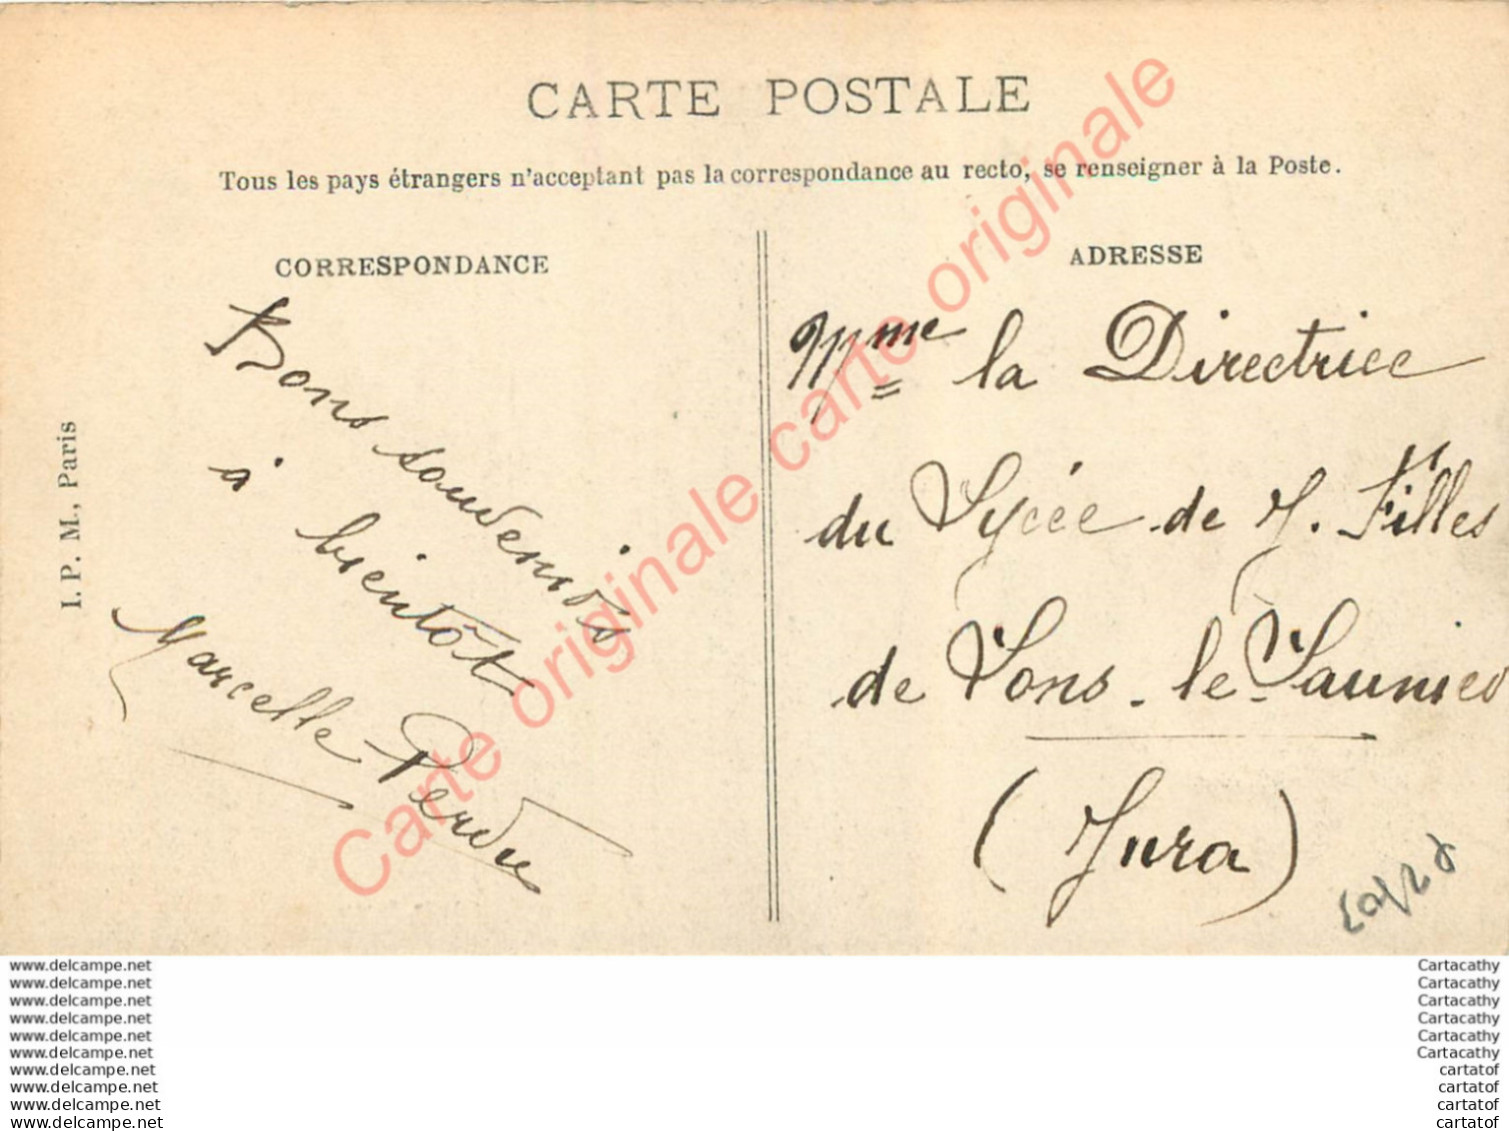 CARTE POSTALE
Tous les pays étrangers n'acceptant pas la correspondance au recto, se renseigner à la Poste.
CORRESPONDANCE
Bons
à bientôt
Marcelle Perdu
I. P. M., Paris
ADRESSE
Mme la Directrice
du Lycée de J. Filles
de Lons-le-Saunier
(Jura)
Carte originale carte originale
www.delcampe.net
www.delcampe.net
www.delcampe.net
www.delcampe.net
www.delcampe.net
www.delcampe.net
www.delcampe.net
www.delcampe.net
www.delcampe.net
www.delcampe.net
Cartacathy
Cartacathy
Cartacathy
Cartacathy
Cartacathy
Cartacathy
cartatof
cartatof
cartatof
cartatof